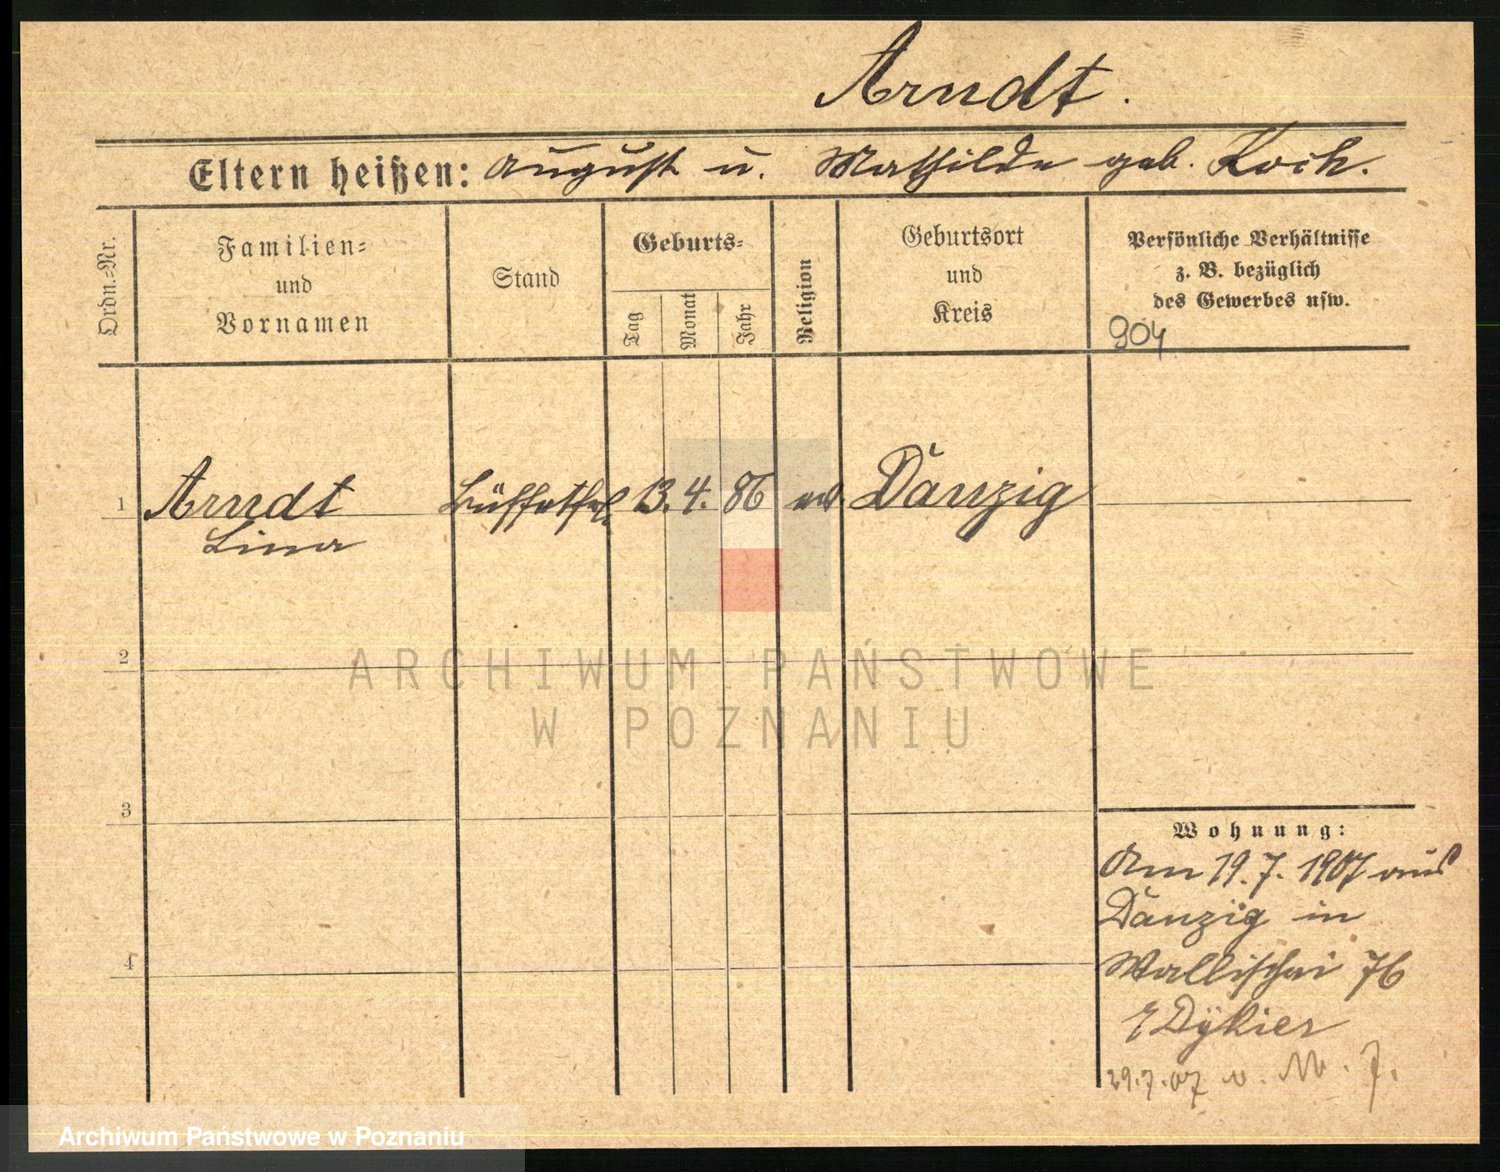 Arndt.
Eltern heißen: August u. Mathilde geb. Koch.
Ordn.-Nr.
Familien-
und
Vornamen
Stand
Geburts-
Tag
Monat
Jahr
Religion
Geburtsort
und
Kreis
Persönliche Verhältnisse
z. B. bezüglich
des Gewerbes usw.
904
1 Arndt 13. 4. 86 ev Danzig
Lina
2
3
4
Wohnung:
Am 19. 7. 1907 aus
Danzig in
Wallischei 76
Dykier
29.7.07 v. M. J.
ARCHIWUM PAŃSTWOWE
W POZNANIU
Archiwum Państwowe w Poznaniu